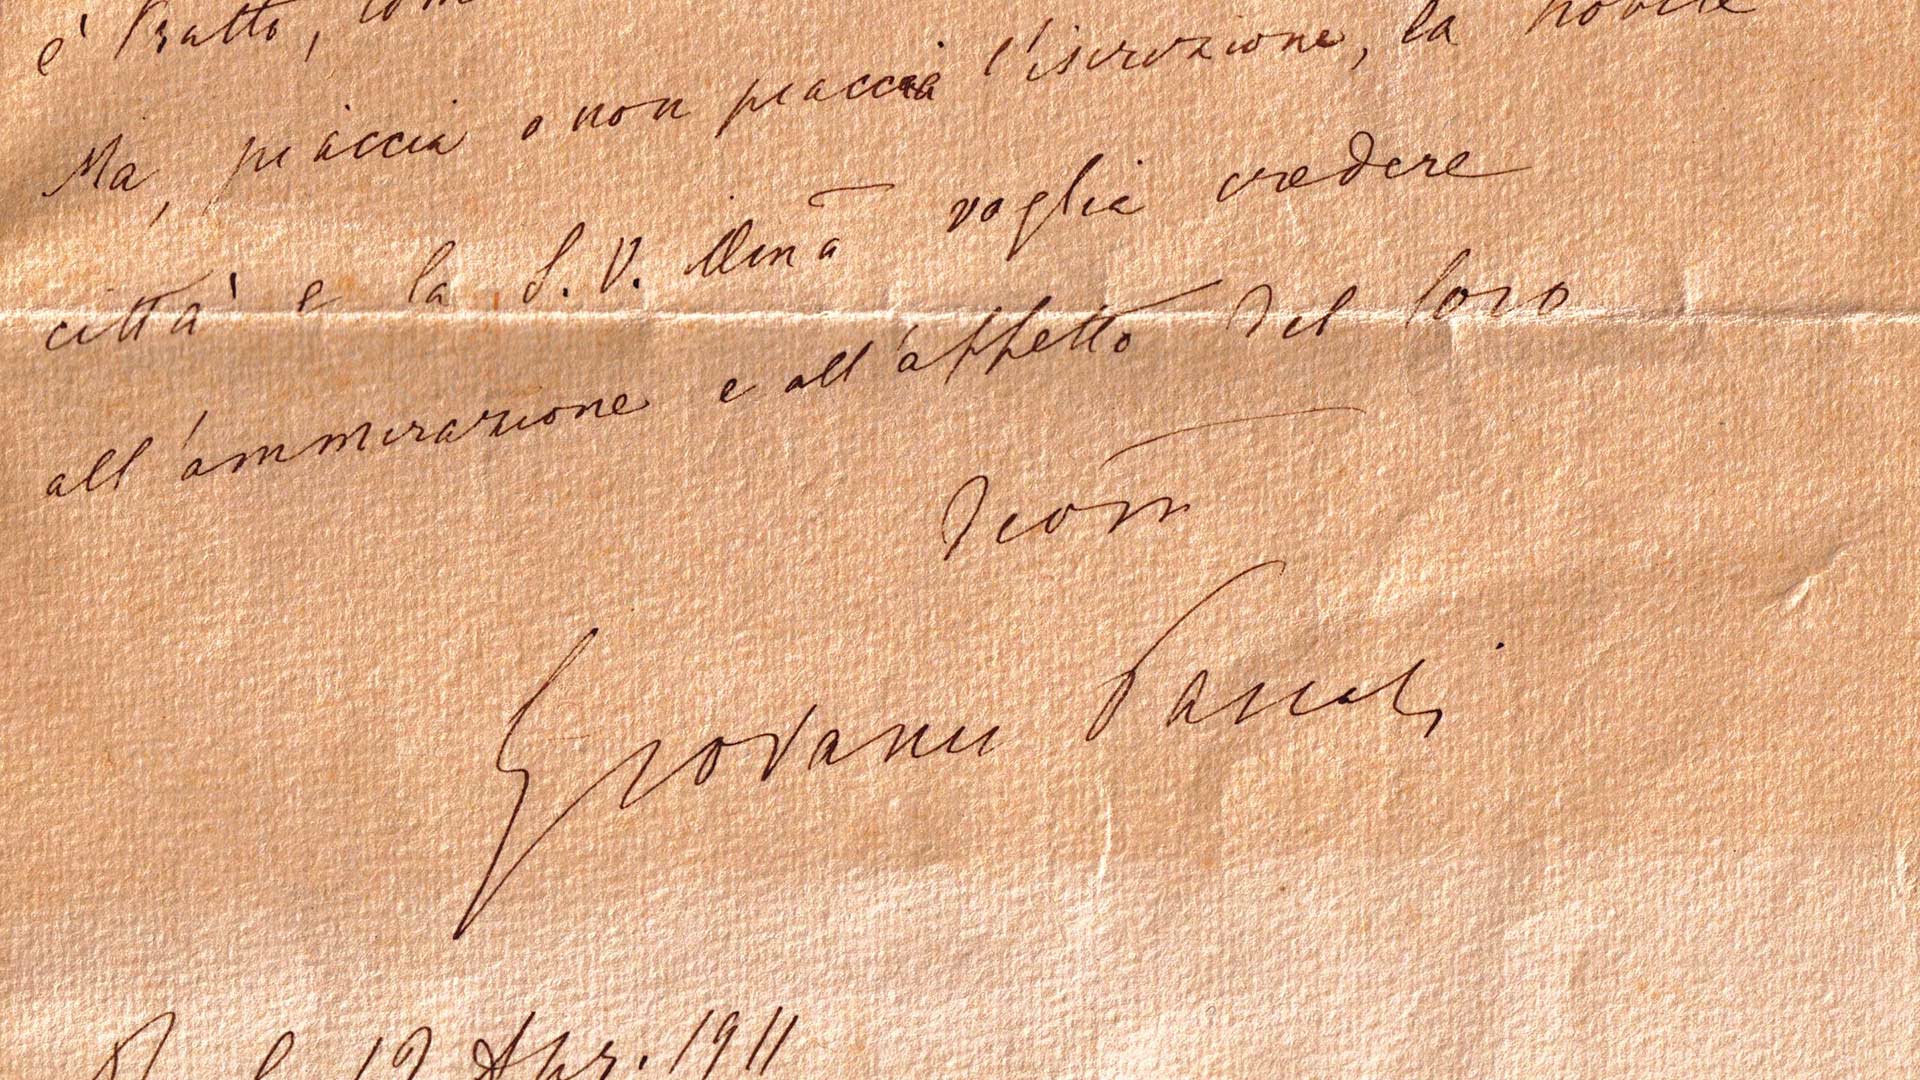 è
Ma, piaccia o non piaccia l'iscrizione, la nobile
città e la S. V. Illma voglia credere
all'ammirazione e all'affetto del loro
Giovanni Pascoli
Apr. 1911